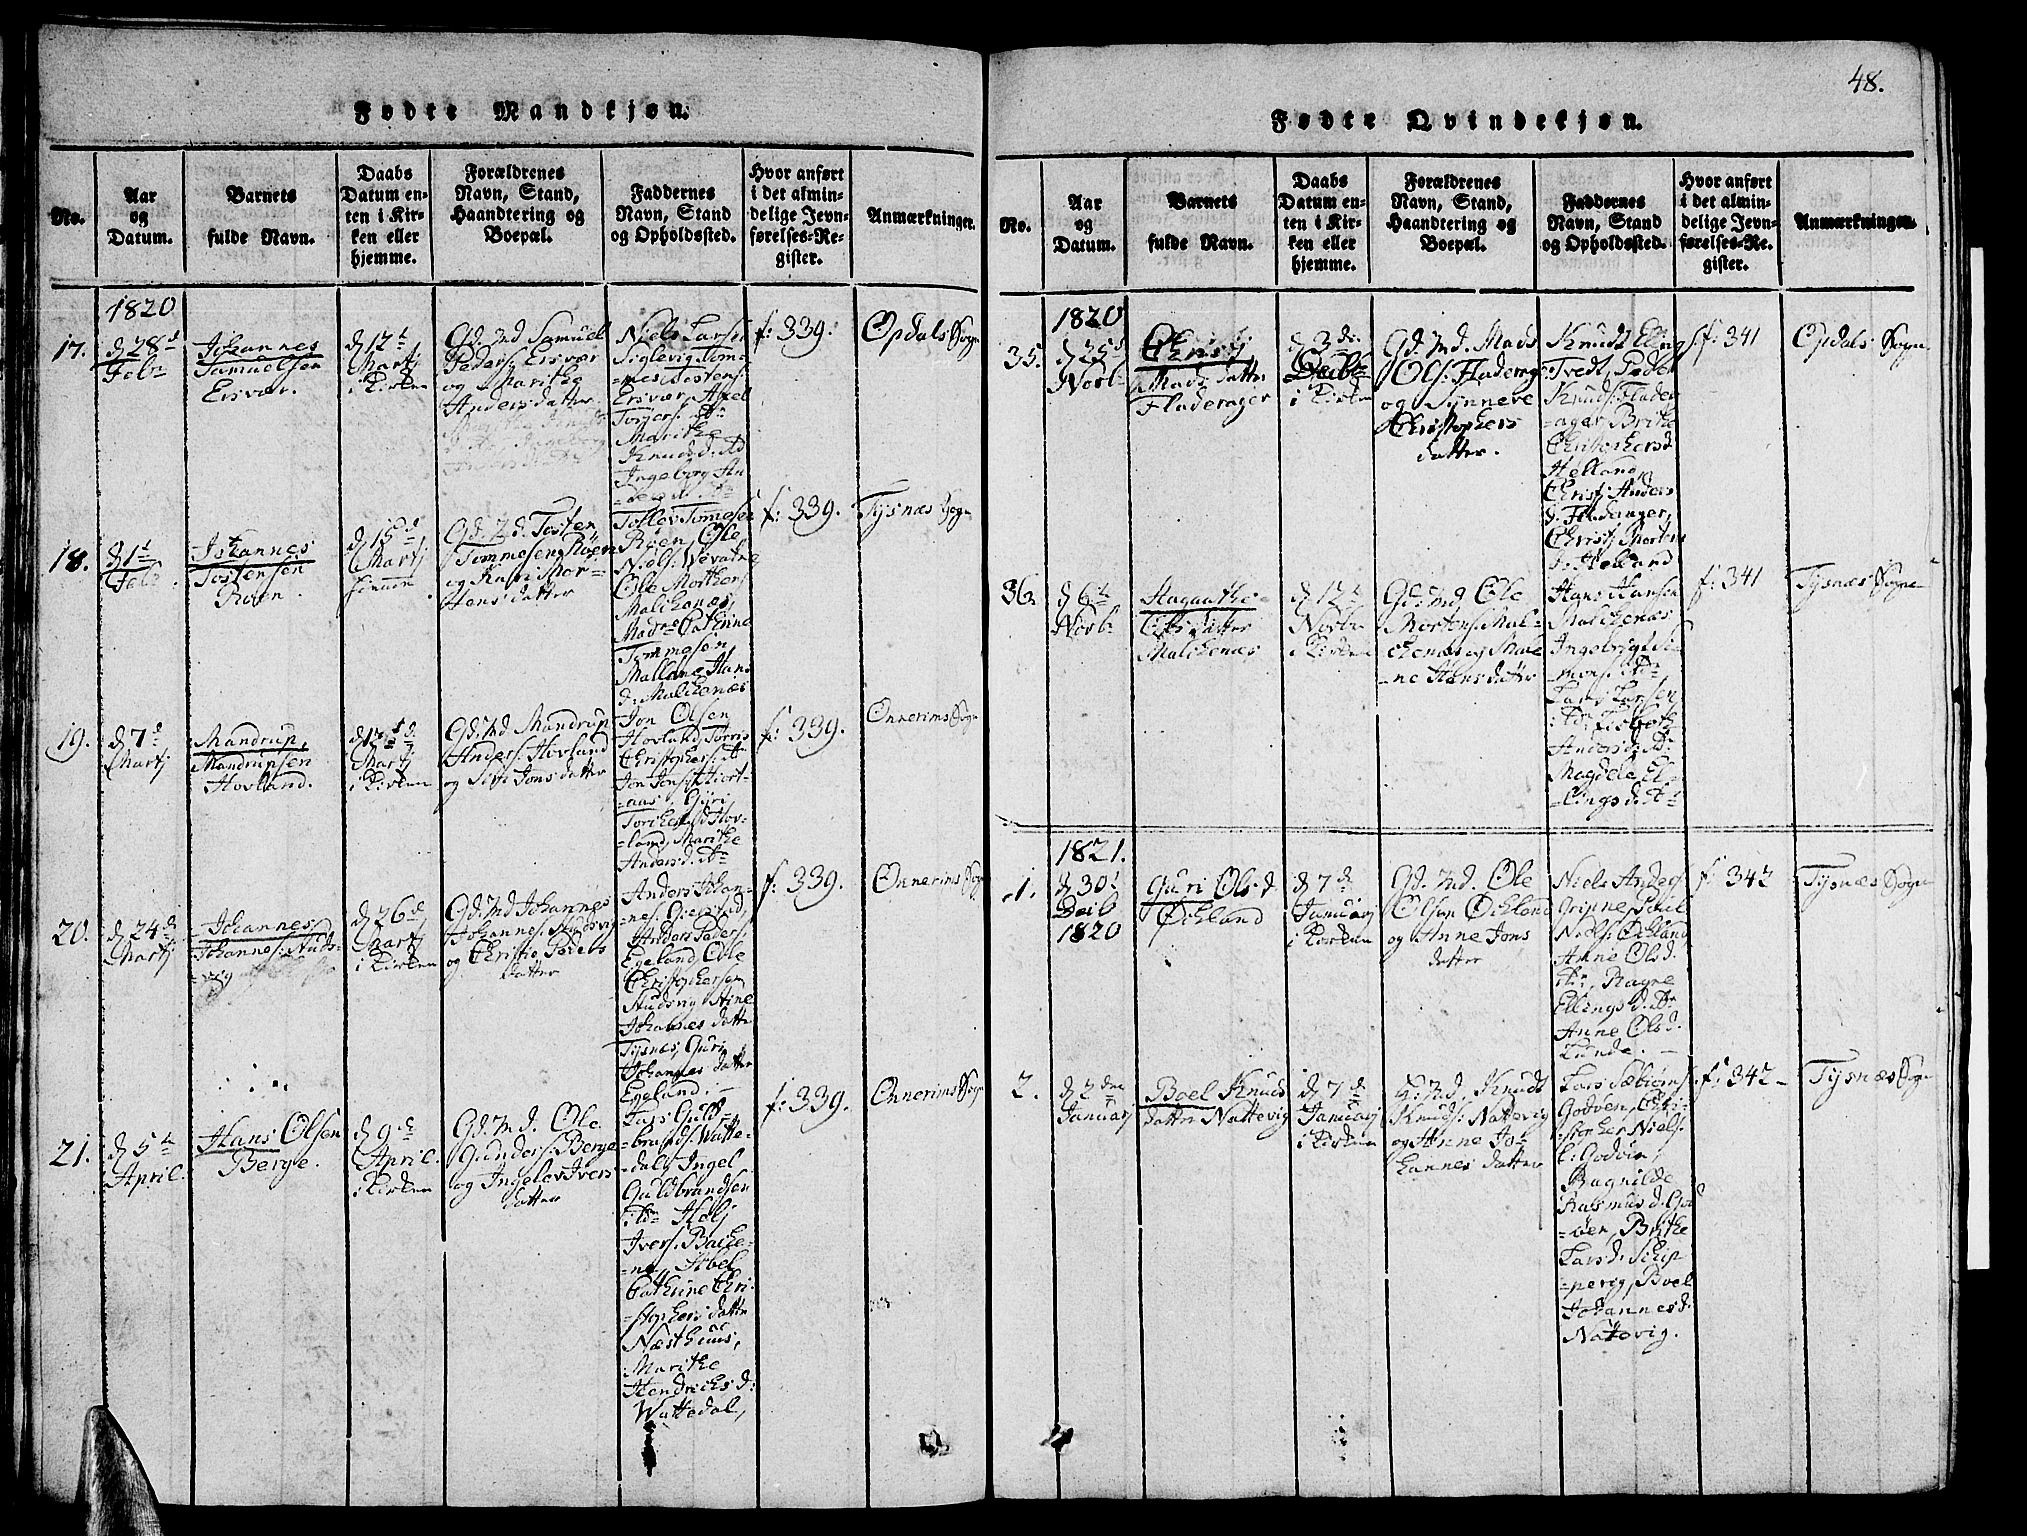 Fødte Mandkjøn.
No.
Aar
og
Datum.
Barnets
fulde Navn.
Daabs
Datum en-
ten i Kir-
ken eller
hjemme.
Forældrenes
Navn, Stand,
Haandtering og
Boepæl.
Faddernes
Navn, Stand
og Opholdssted.
Hvor anført
i det almin-
delige Jevn-
førelses-Re-
gister.
Anmærkninger.
1820
17.
d 28d
Febr
Johannes
Samuelsen
Ersvær.
d 12t
Martj
i Kirken
Gd. Md Samuel
Peders. Ersvær
og Marithe
Anders datter
Niels Larsen
Siglevig, Tom-
mes Tostens.
Ersvær, Axel
Marithe
Knudsd.
Ingeborg An-
f: 339.
Opdals Sogn
18.
d 1t
Febr.
Johannes
Tostensen
Roen.
d 15d
Martj
hiemme.
Gd. Md. Tosten
Tommesen Roen
og Kari Mor-
tens datter
Tollev Tommesen
Roen, Ole
Niels. Wevatne
Ole Mortens.
Malkenæs,
Catrine
Tommesen
Mallene Hans
d. Malkenæs
f: 339.
Tysnæs Sogn
19.
d 7d
Martj
Mandrup
Mandrupsen
Hovland.
Martj
i Kirken
Gd. Md Mandrup
Anders. Hovland
og Siri Jons datter
Jon Olsen
Hovland, Torris
Christophers.
Jon Jens. Hiort-
-aas, Guri
Hov-
-land, Marithe
Andersd.
f: 339.
Onnerims Sogn
20.
d 24de
Martj
Johannes
Johannes. Huds-
-vig
d 26d
Martj
i Kirken
Gd. Md Johannes
Johannes. Hudsvig
og Christie Peders
datter
Anders Johan-
-nes. Gierstad,
Anders Peders.
Egeland, Ole
Christophersen
Hudsvig, Stine
Johannes datter
Tysnæs, Guri
Johannes datter
Egeland.
f: 339.
Onnerims Sogn
21.
d 5te
April.
Hans Olsen
Berge.
d 9de
April.
i Kirken
Gd. Md. Ole
Gunders. Berge
og Ingelev Ivers
datter
Lars Guld-
-brands. Watte-
-dal, Ingel
Guldbrandsen
Ivers. Bache-
-ne, Abel
Cathrine Chri-
-stophers datter
Næsthuus,
Marithe
Hendrichs d:
Wattedal,
f: 339.
Onnerims Sogn
48.
Fødte Qvindekjøn.
No.
Aar
og
Datum.
Barnets
fulde Navn.
Daabs
Datum en-
ten i Kir-
ken eller
hjemme.
Forældrenes
Navn, Stand,
Haandtering og
Boepæl.
Faddernes
Navn, Stand
og Opholdssted.
Hvor anført
i det almin-
delige Jevn-
førelses-Re-
gister.
Anmærkninger.
1820
35.
d 25d
Novb
Christj
Mads datter
Fladerager
d 3de
Decbr
i Kirken
Gd. Md. Mads
Ols. Fladerager
og Synneve
Christophers
datter.
Knudt Elling
Tvedt, Peder
Knuds. Flader-
-ager, Brithe
Christophersd
Helland,
Christj Anders
d. Fladerager,
Christj Mortens
d. Helland
f 341
Opdals Sogn
36.
d 6te
Novb
Aagaathe
Ols datter
Malkenæs
d 12te
Novbr
i Kirken
Gd: Md Ole
Mortens. Mal-
-kenæs og Male
-ne Hans datter
Hans Hansen
Malkenæs
Ingebrigt Si-
-mons.
Lars Larsen
Anders d.
Magdele El-
-lings d.
f: 341
Tysnæs Sogn
1821.
1.
d 30t
Decb
1820
Guri Ols d
Øchland
d 7de
Januarj
i Kirken
Gd. Md. Ole
Olsen Øchland
og Anne Jons
datter
Niels Anders
Gripne, Poul
Niels. Øchland
Anne Olsd.
Ragne
Ellings d.
Anne Olsd.
Lunde.
f: 342
Tysnæs Sogn
2.
d 2den
Januarj
Boel Knuds
datter Nattevig
d 7de
Januarj
i Kirken
Gd. Md. Knudt
Knuds. Nattevig
og Anne Jo-
hannes datter
Lars Sæbiøns.
Godøen, Chri-
-stopher Niels.
Godøen,
Ragnilde
Rasmus d. Go-
-øen, Brithe
Lars d. Schip-
-pevig, Boel
Johannes d.
Nattevig.
f: 342
Tysnæs Sogn